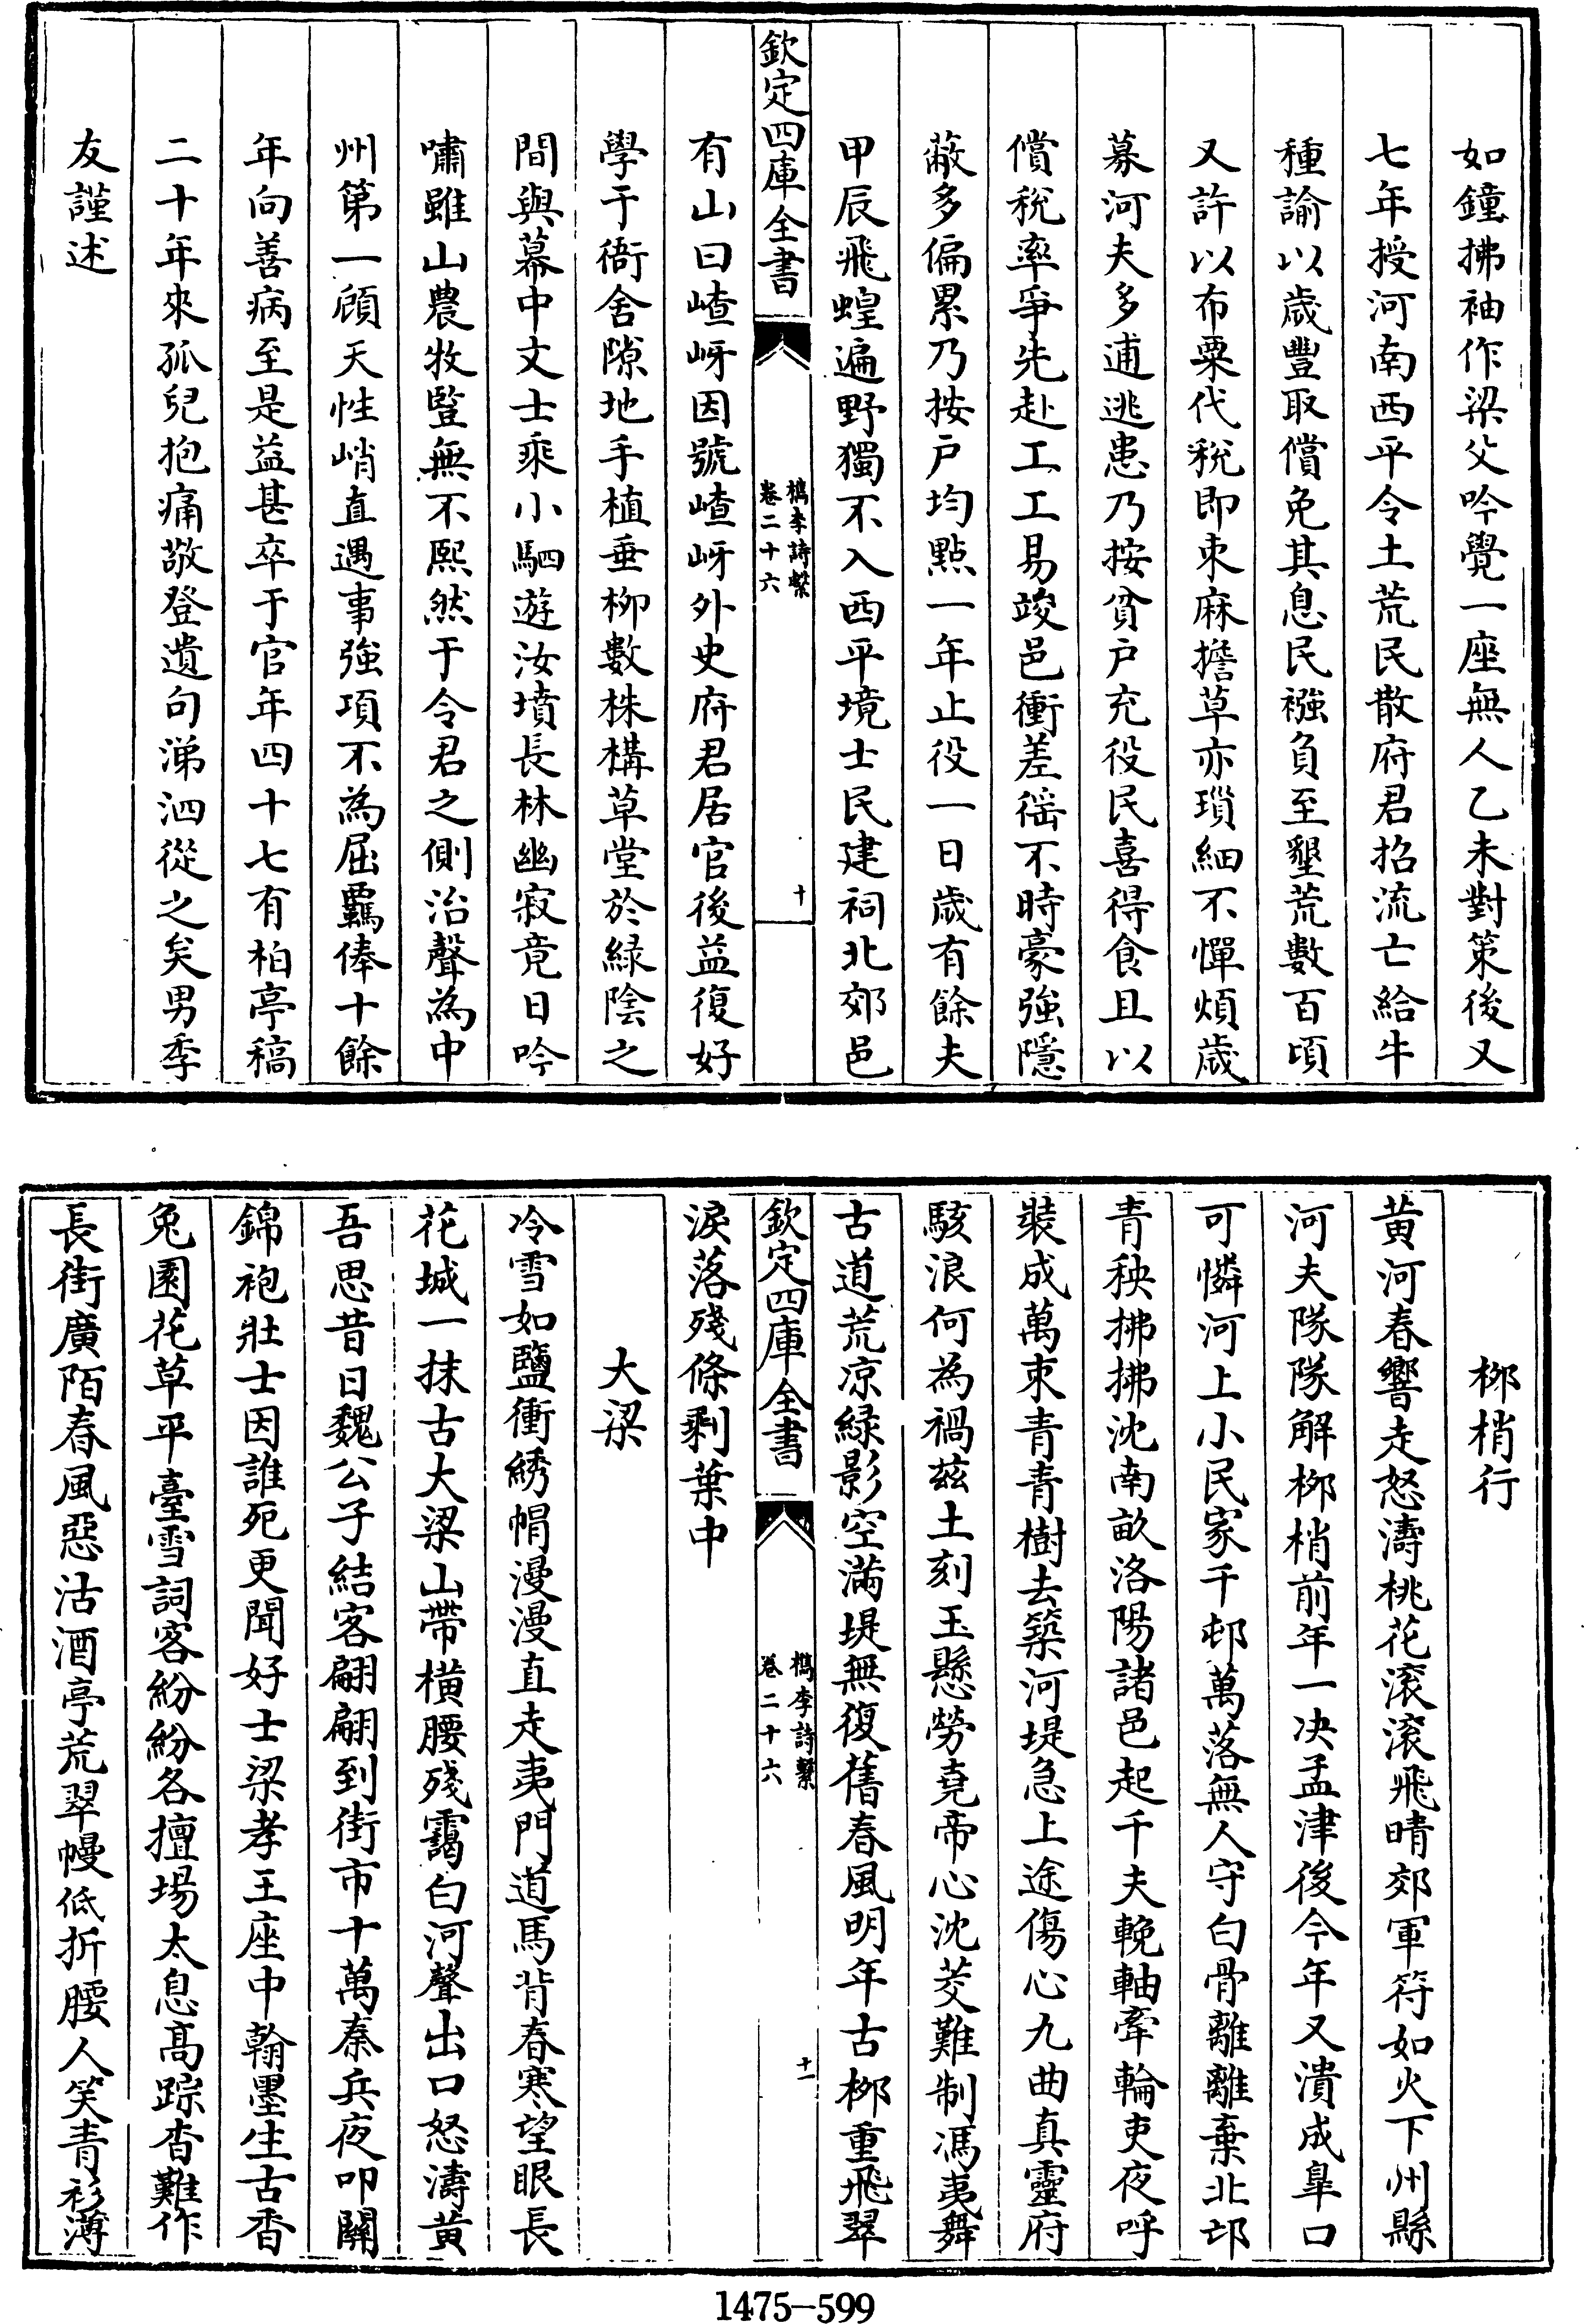 如鐘拂袖作梁父吟覺一座無人乙未對策後又
七年授河南西平令土荒民散府君招流亡給牛
種諭以歲豐取償免其息民襁負至墾荒數百頃
又許以布粟代稅即束麻擔草亦瑣細不憚煩歲
募河夫多逋逃患乃按貧户充役民喜得食且以
償稅率爭先赴工工易竣邑衝差徭不時豪強隱
蔽多偏累乃按户均㸃一年止役一日歲有餘夫
甲辰飛蝗遍野獨不入西平境士民建祠北郊邑
欽定四庫全書
檇李詩繫
卷二十六
十
有山曰嵖岈因號嵖岈外史府君居官後益復好
學于衙舍隙地手植垂栁數株構草堂於綠陰之
間與幕中文士乘小駟遊汝墳長林幽寂竟日吟
嘯雖山農牧豎無不熙然于令君之側治聲為中
州第一顧天性峭直遇事強項不為屈羈俸十餘
年向善病至是益甚卒于官年四十七有柏亭稿
二十年來孤兒抱痛敬登遺句涕泗從之矣男季
友謹述
栁梢行
黄河春響走怒濤桃花滚滚飛晴郊軍符如火下州縣
河夫隊隊解栁梢前年一决孟津後今年又潰成臯口
可憐河上小民家千邨萬落無人守白骨離離棄北邙
青秧拂拂沈南畝洛陽諸邑起千夫輓軸牽輪吏夜呼
裝成萬束青青樹去築河堤急上途傷心九曲真靈府
駭浪何為禍兹土刻玉懸勞堯帝心沈茭難制馮夷舞
古道荒凉緑影空滿堤無復舊春風明年古栁重飛翠
欽定四庫全書
檇李詩繫
卷二十六
十一
淚落殘條剩葉中
大梁
冷雪如鹽衝綉帽漫漫直走夷門道馬背春寒望眼長
花城一抹古大梁山帶橫腰殘靄白河聲出口怒濤黄
吾思昔日魏公子結客翩翩到街市十萬秦兵夜叩關
錦袍壯士因誰死更聞好士梁孝王座中翰墨生古香
兔園花草平臺雪詞客紛紛各擅場太息髙踪杳難作
長街廣陌春風惡沽酒亭荒翠幔低折腰人笑青衫薄
1475—599